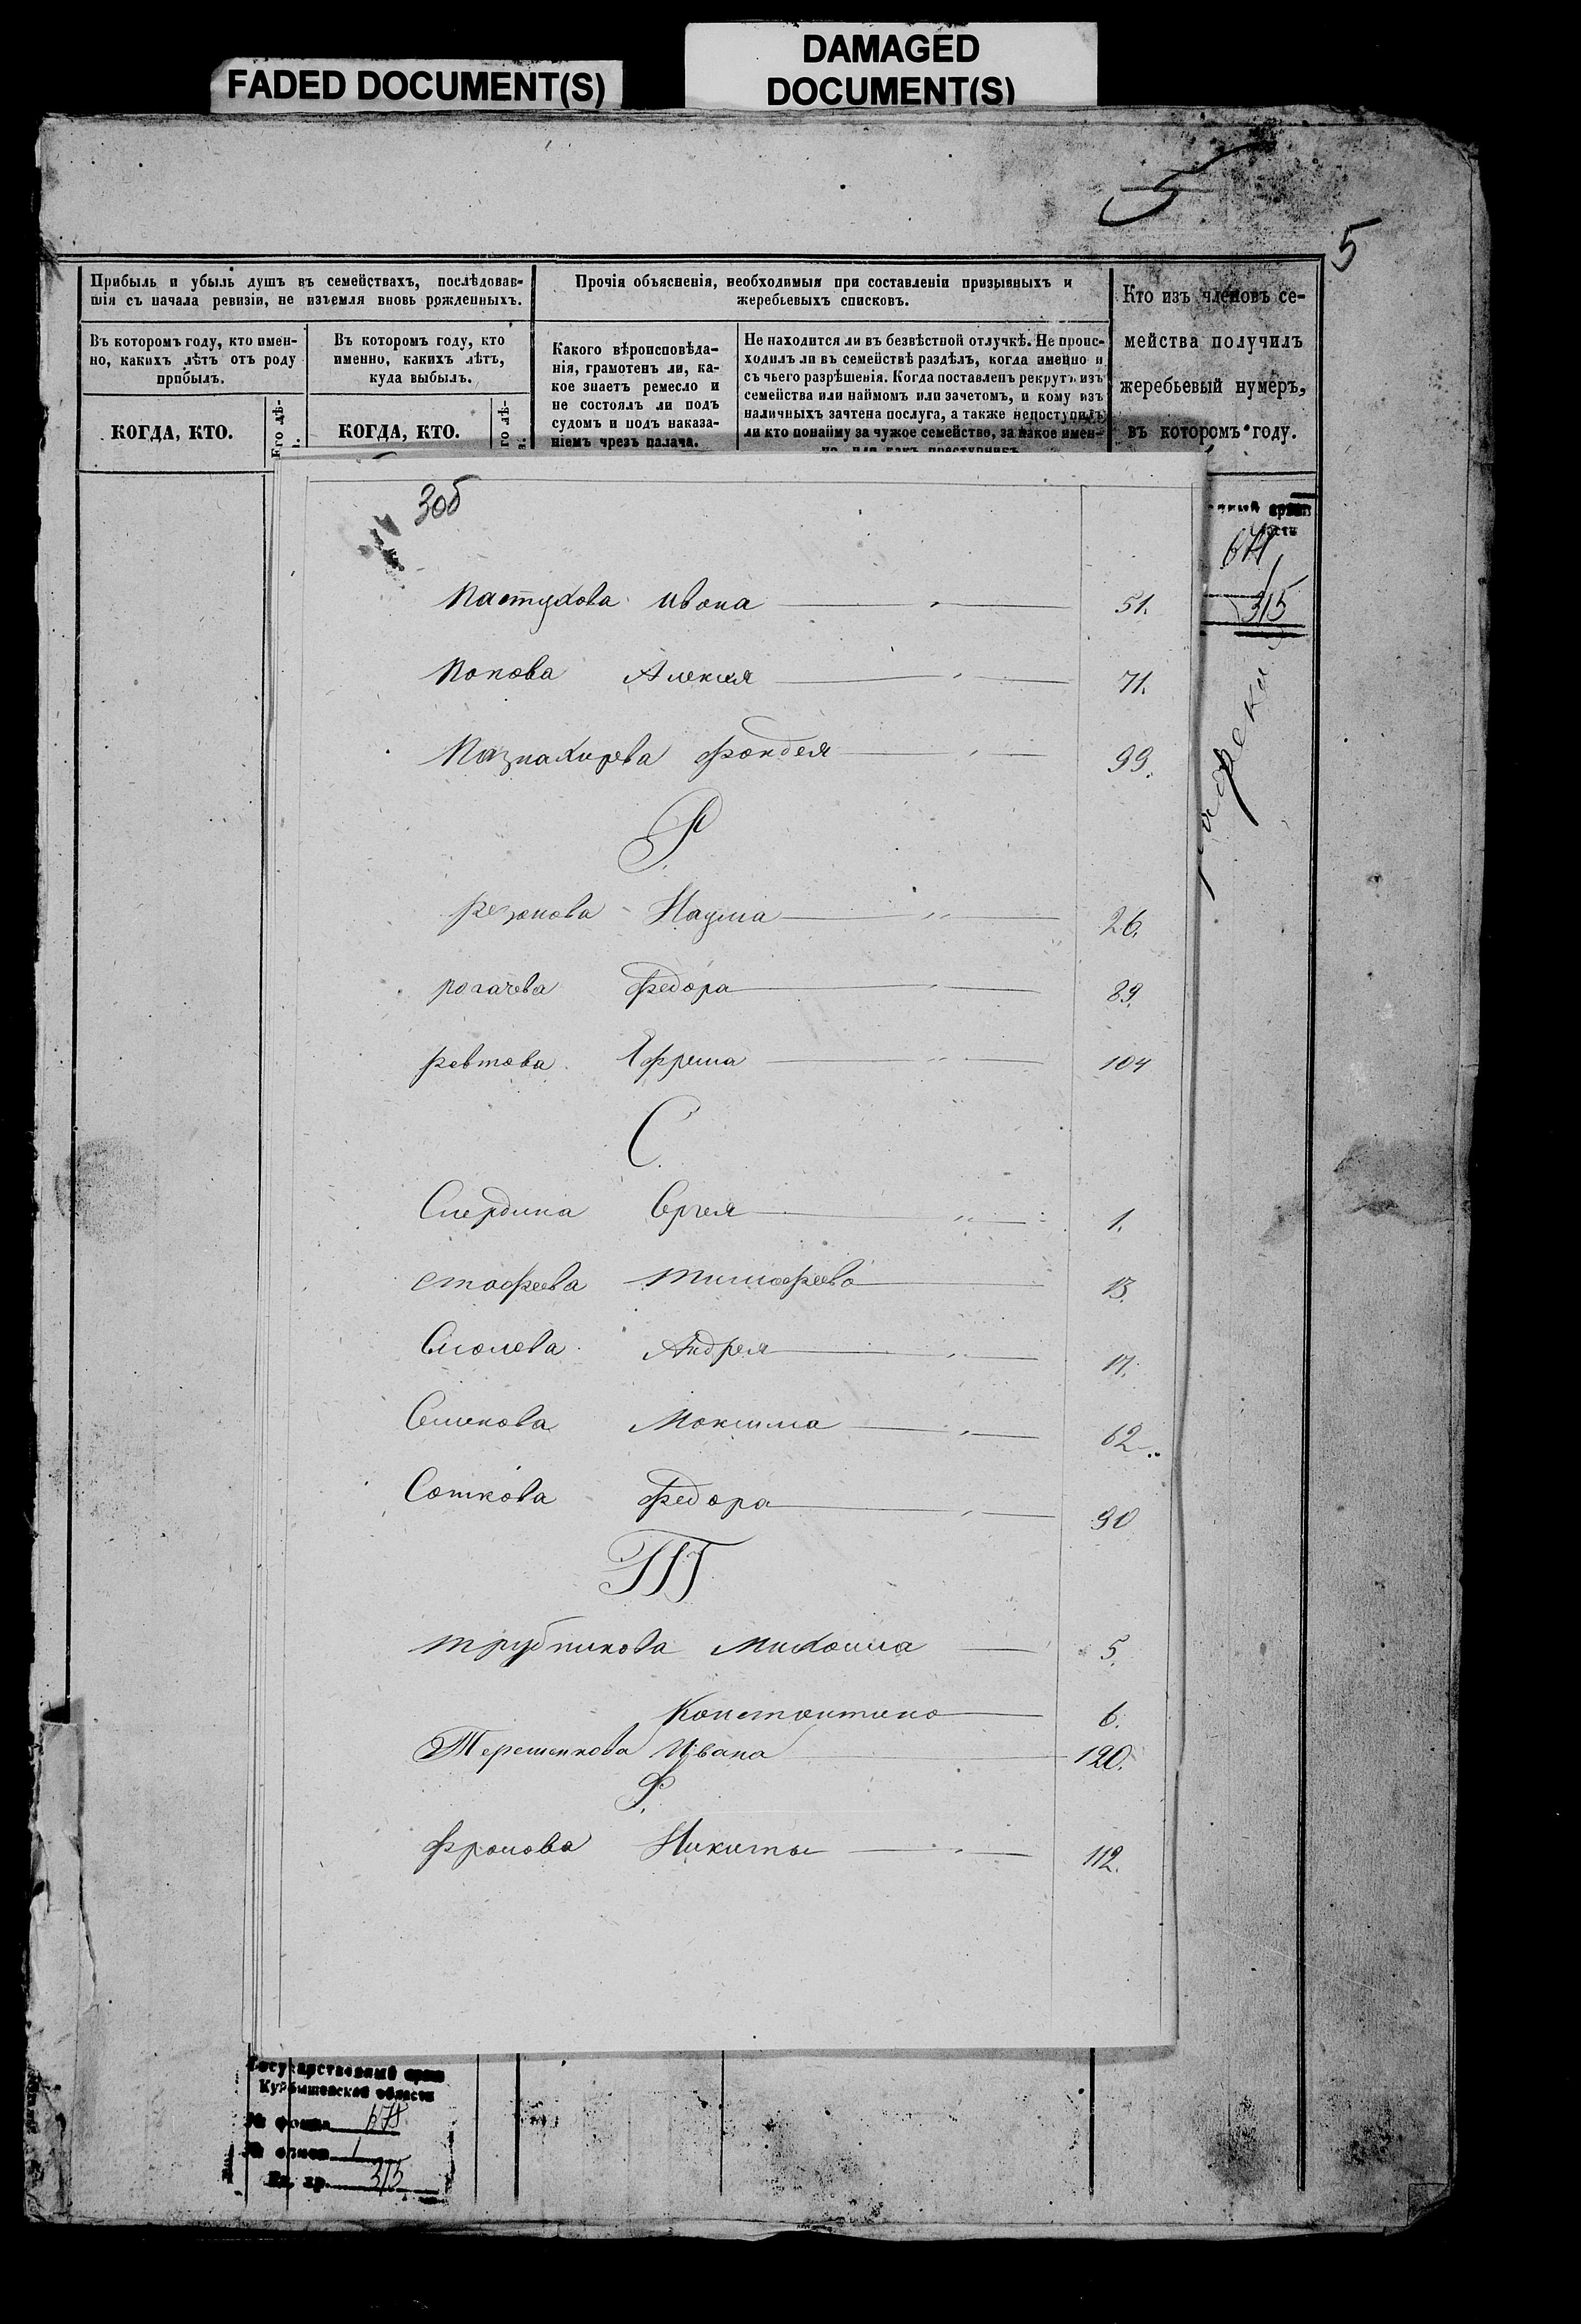 FADED DOCUMENT(S)
DAMAGED
DOCUMENT(S)
5
5
Прибыль и убыль душъ въ семействахъ, послѣдовав-
шія съ начала ревизіи, не изъемля вновь рожденныхъ.
Въ которомъ году, кто имен-
но, какихъ лѣтъ отъ роду
прибылъ.
Въ которомъ году, кто
именно, какихъ лѣтъ,
куда выбылъ.
КОГДА, КТО.
Его лѣ-
КОГДА, КТО.
го лѣ-
Прочія объясненія, необходимыя при составленіи призывныхъ и
жеребьевыхъ списковъ.
Какого вѣроисповѣда-
нія, грамотенъ ли, ка-
кое знаетъ ремесло и
не состоялъ ли подъ
судомъ и подъ наказа-
ніемъ чрезъ палача.
Не находится ли въ безвѣстной отлучкѣ. Не проис-
ходилъ ли въ семействѣ раздѣлъ, когда именно и
съ чьего разрѣшенія. Когда поставленъ рекрутъ изъ
семейства или наймомъ или зачетомъ, и кому изъ
наличныхъ зачтена послуга, а также непоступилъ
ли кто понайму за чужое семейство, за какое имен-
но, или какъ преступникъ
Кто изъ членовъ се-
мейства получилъ
жеребьевый нумеръ,
въ которомъ году.
305
Пастухова Ивана 51.
Попова Алексея 71.
Познахирева Фондея 99.
Р
Резонова Наума 26.
Рогачева Федора 89.
Ревтова Ефрема 104
С
Смердина Сергея 1.
Стафеева Тимофеева 13.
Смолева Андрея 17.
Семенова Максима 62
Соткова Федора 90
Т
Трубникова Михаила 5.
Константина 6.
Терешенкова Ивана 120.
Ф.
Фролова Никиты 112.
315
Государственный архив
Куйбышевской области
№ фонда 678
№ описи 1
Ед. хр. 315